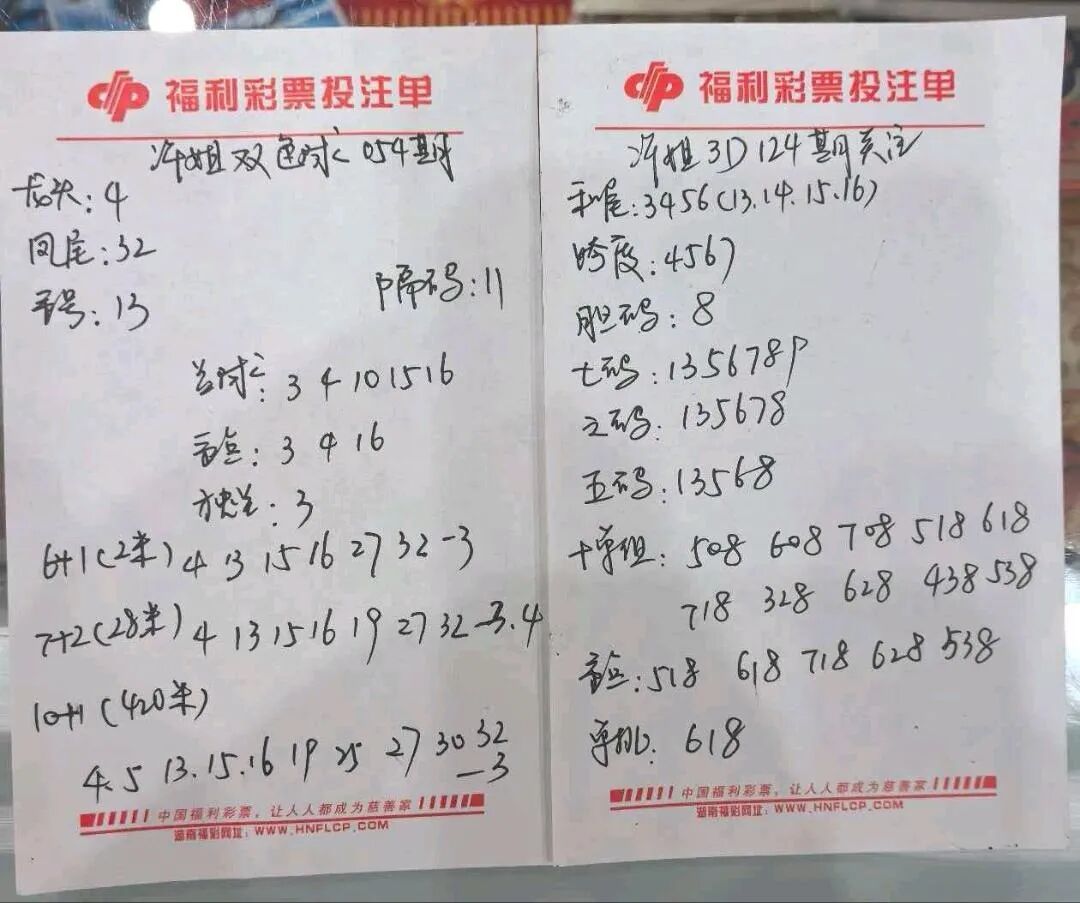 福利彩票投注单
冷姐双色球 054期
龙头:4
凤尾:32
隔码:11
弃号:13
兰球:3 4 10 15 16
重点:3 4 16
独兰:3
6+1(2米) 4 13 15 16 27 32-3
7+2(28米) 4 13 15 16 19 27 32-3.4
10+1(420米)
4.5 13.15.16 19 25 27 30 32
-3
中国福利彩票,让人人都成为慈善家
湖南福彩网址:WWW.HNFLCP.COM
福利彩票投注单
冷姐3D 124期关注
和尾:3456(13.14.15.16)
跨度:4567
胆码:8
七码:1356789
六码:135678
五码:13568
十单组:508 608 708 518 618
718 328 628 438 538
重点:518 618 718 628 538
单挑:618
中国福利彩票,让人人都成为慈善家
湖南福彩网址:WWW.HNFLCP.COM